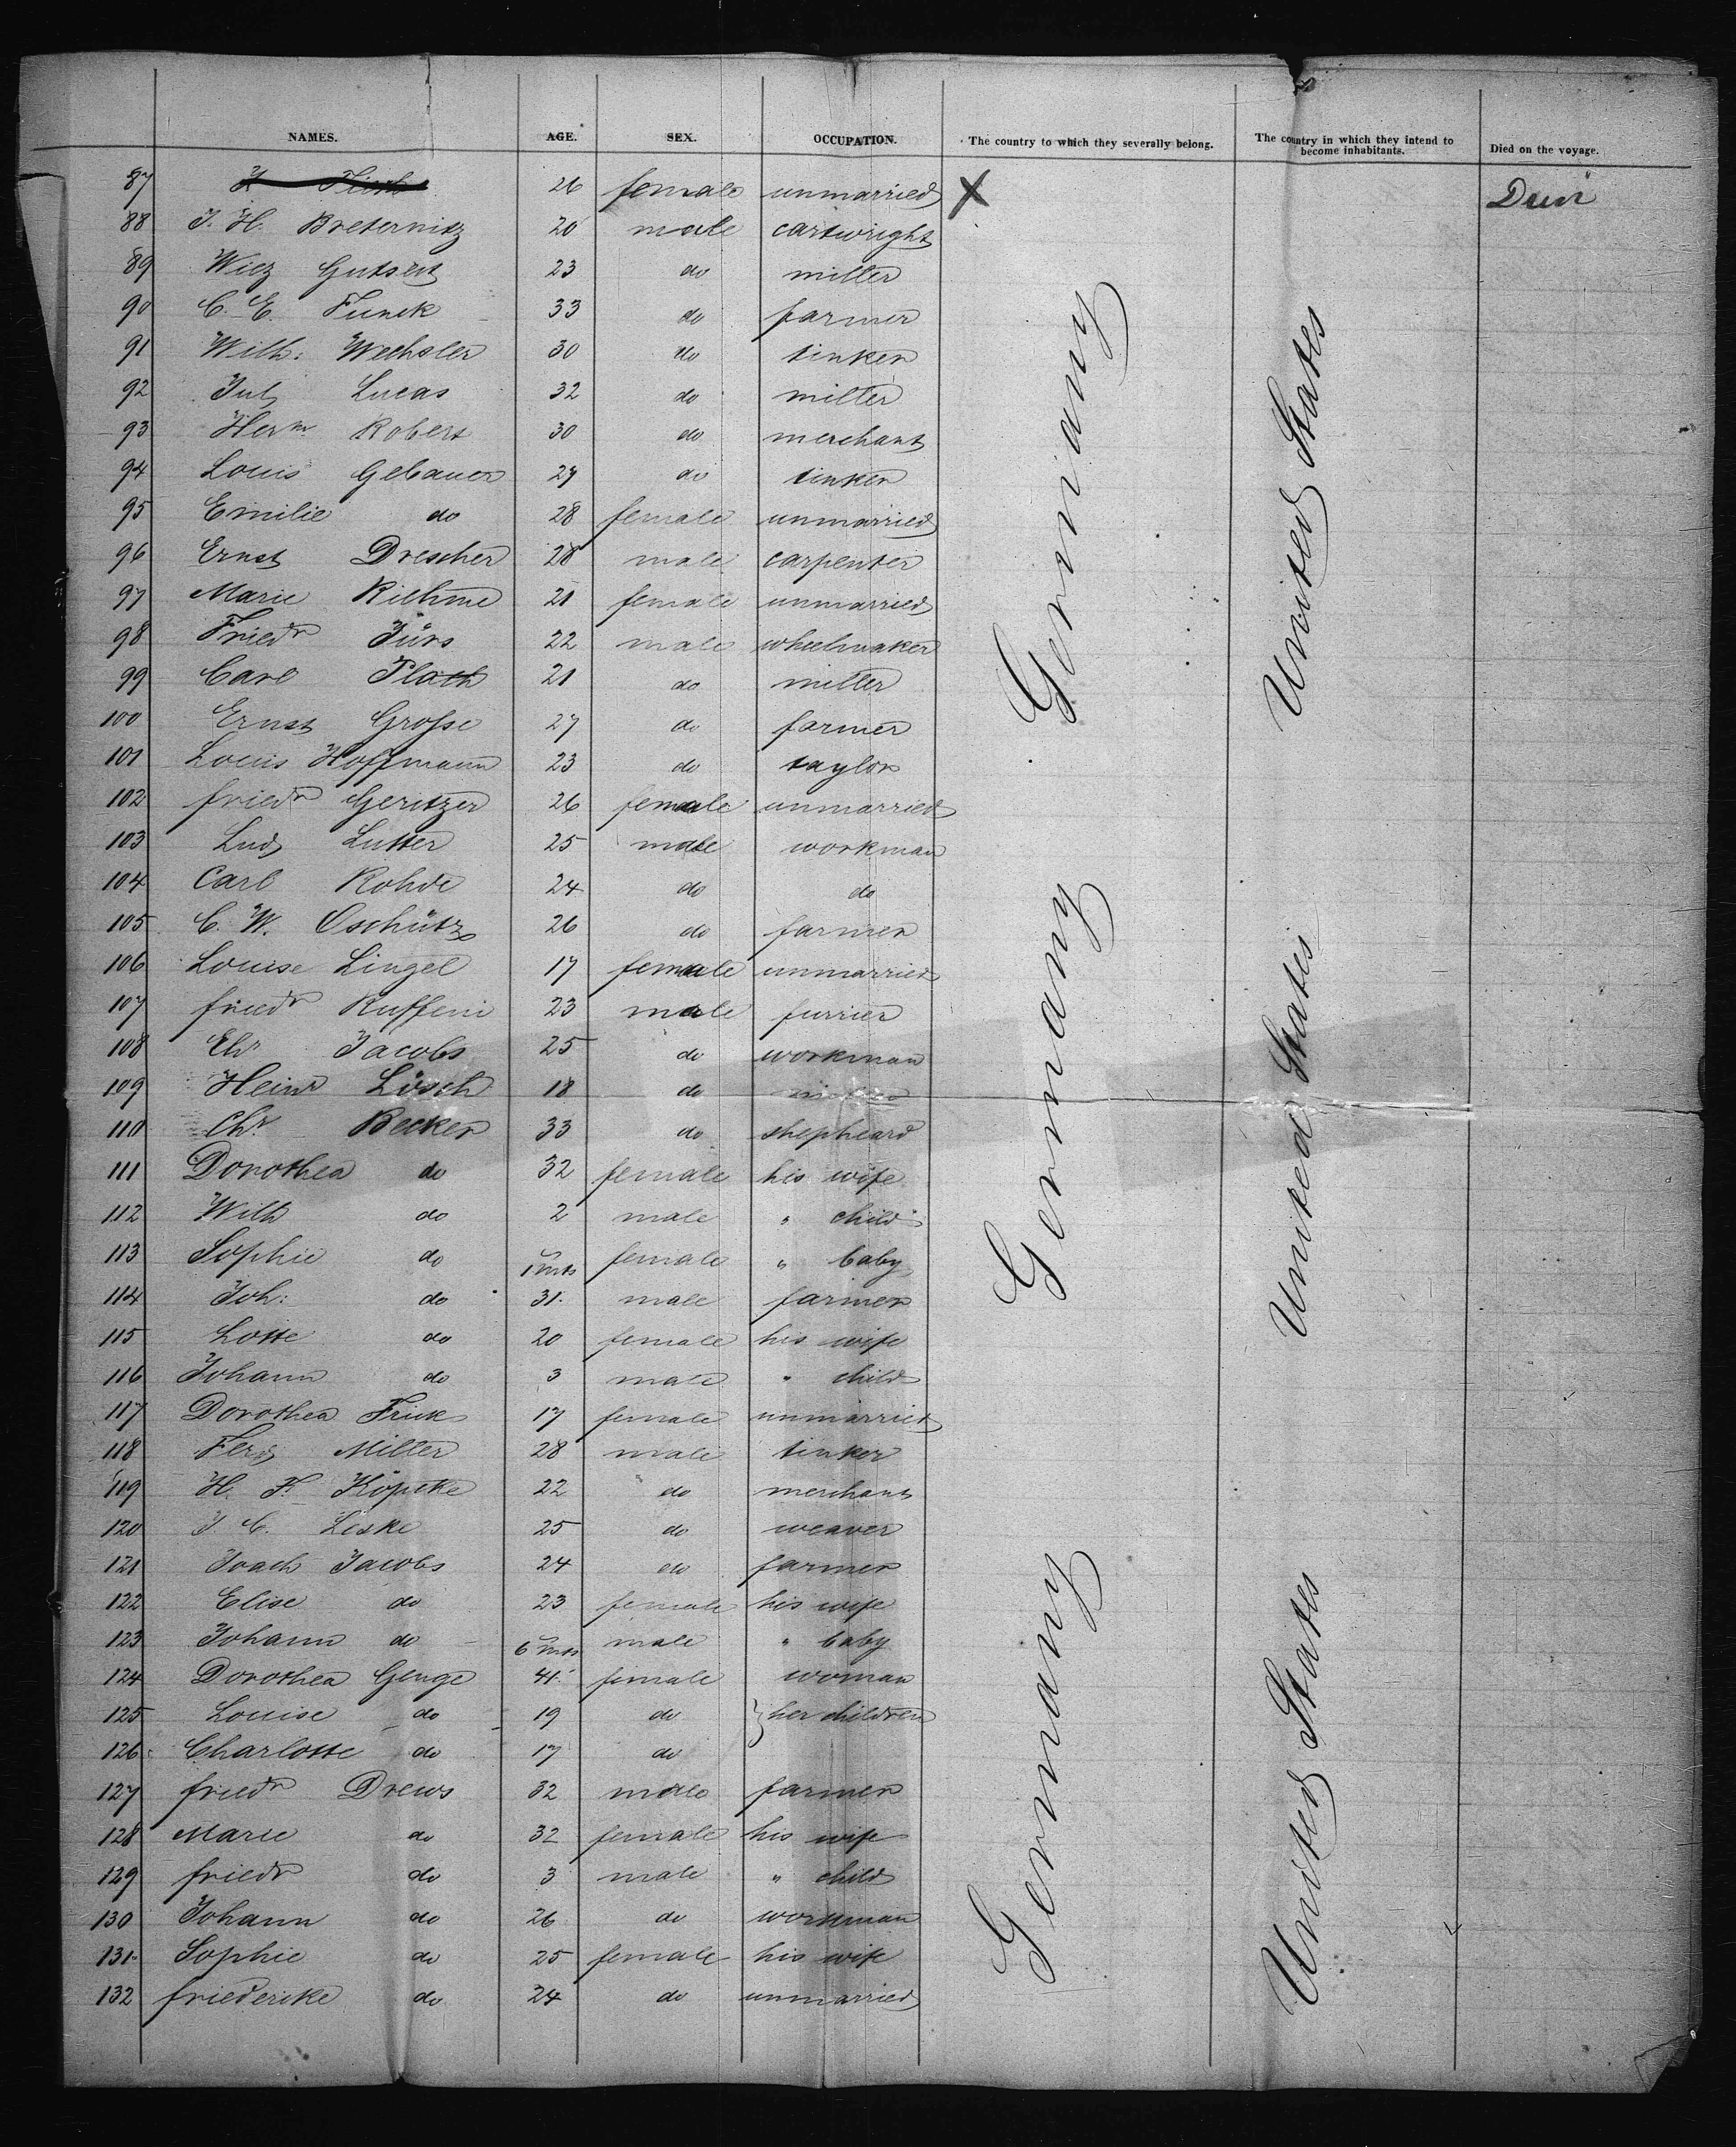 NAMES. AGE. SEX. OCCUPATION. The country to which they severally belong. The country in which they intend to become inhabitants. Died on the voyage.
87 26 female unmarried X
88 J. H. Breternitz 20 male cartwright
89 23 do miller
90 C. E. Funck 33 do farmer
91 Wilh: Wechsler 30 do tinker
92 Jul Lucas 32 do miller
93 Herm Robert 30 do merchant
94 Louis Gebauer 27 do tinker
95 Emilie do 28 female unmarried
96 Ernst Drescher 28 male carpenter
97 Marie Riehme 21 female unmarried
98 Friedr Jürs 22 male wheelmaker
99 Carl Plath 21 do miller
100 Ernst Grosse 27 do farmer
101 Louis Hoffmann 23 do taylor
102 friedr Geritzer 26 female unmarried
103 Lud Lutter 25 male workman
104 Carl Rohde 24 do do
105 C. W. Oschütz 26 do farmer
106 Louise Lingel 17 female unmarried
107 friedr 23 male furrier
108 Chr Jacobs 25 do workman
109 Heinr Lösch 18 do
110 Chr Becker 33 do shepheard
111 Dorothea do 32 female his wife
112 Wilh do 2 male " child
113 Sophie do 1 mts female " baby
114 Joh: do 31 male farmer
115 Lotte do 20 female his wife
116 Johann do 3 male " child
117 Dorothea Frick 17 female unmarried
118 Ferd Miller 28 male tinker
119 H. F. Köpcke 22 do merchant
120 J C. Leske 25 do weaver
121 Joach Jacobs 24 do farmer
122 Elise do 23 female his wife
123 Johann do 6 mts male " baby
124 Dorothea Genge 41 female woman
125 Louise do 19 do } her children
126 Charlotte do 17 do
127 friedr Drews 32 male farmer
128 Marie do 32 female his wife
129 friedr do 3 male " child
130 Johann do 26 do workman
131 Sophie do 25 female his wife
132 friedericke do 24 do unmarried
Germany United States
Germany United States
Germany United States